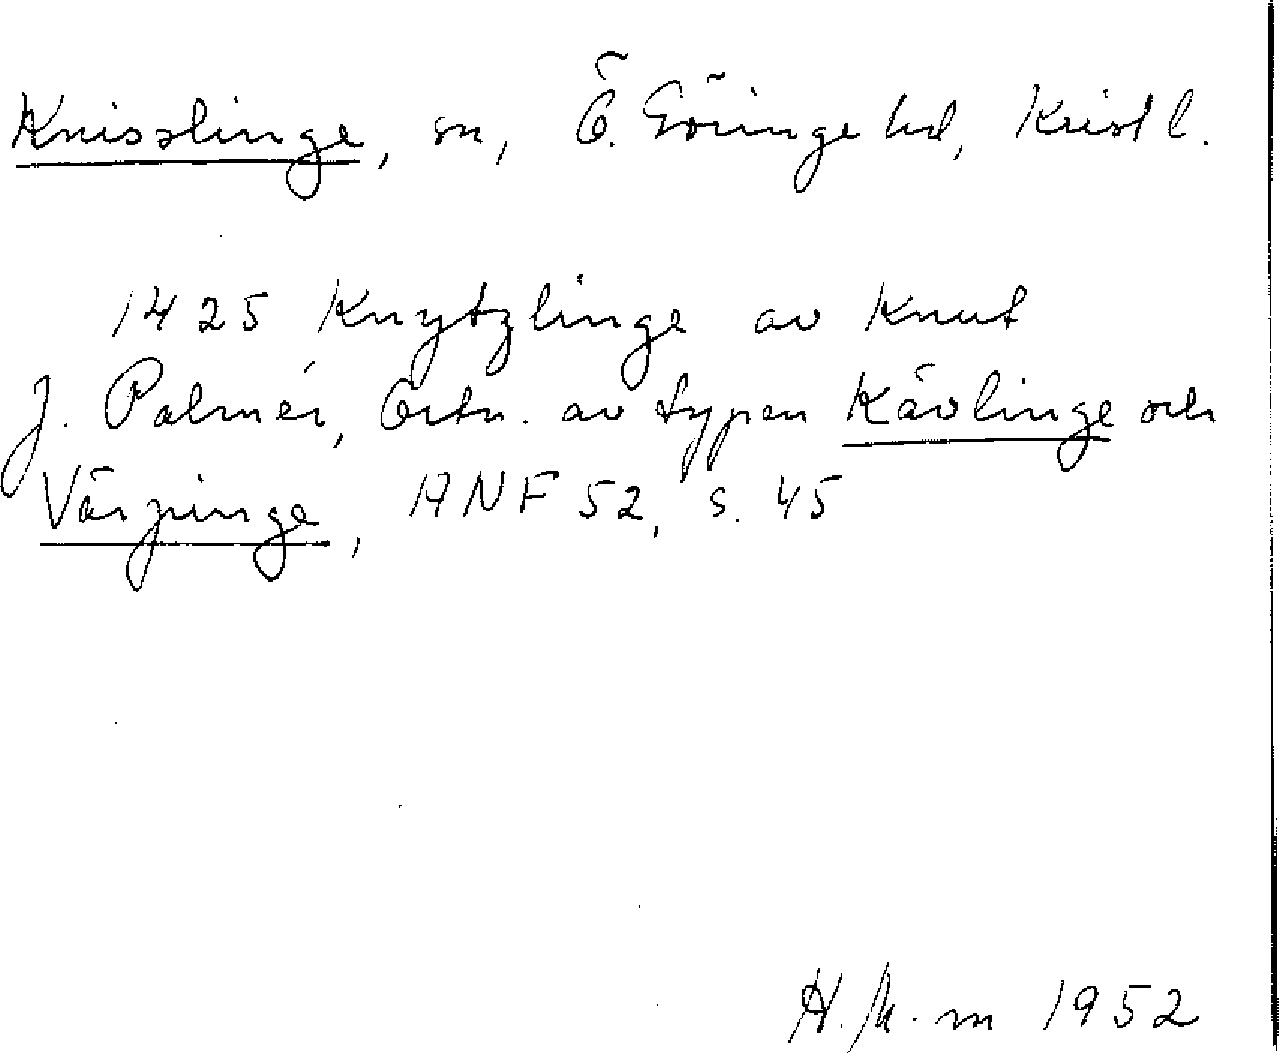 Knisslinge, sn, Ö. Göinge hd, Krist l.
1425 Knytzlinge av Knut
J. Palmér, Ortn. av typen Kävlinge och
Värpinge, ANF 52, s. 45
1952